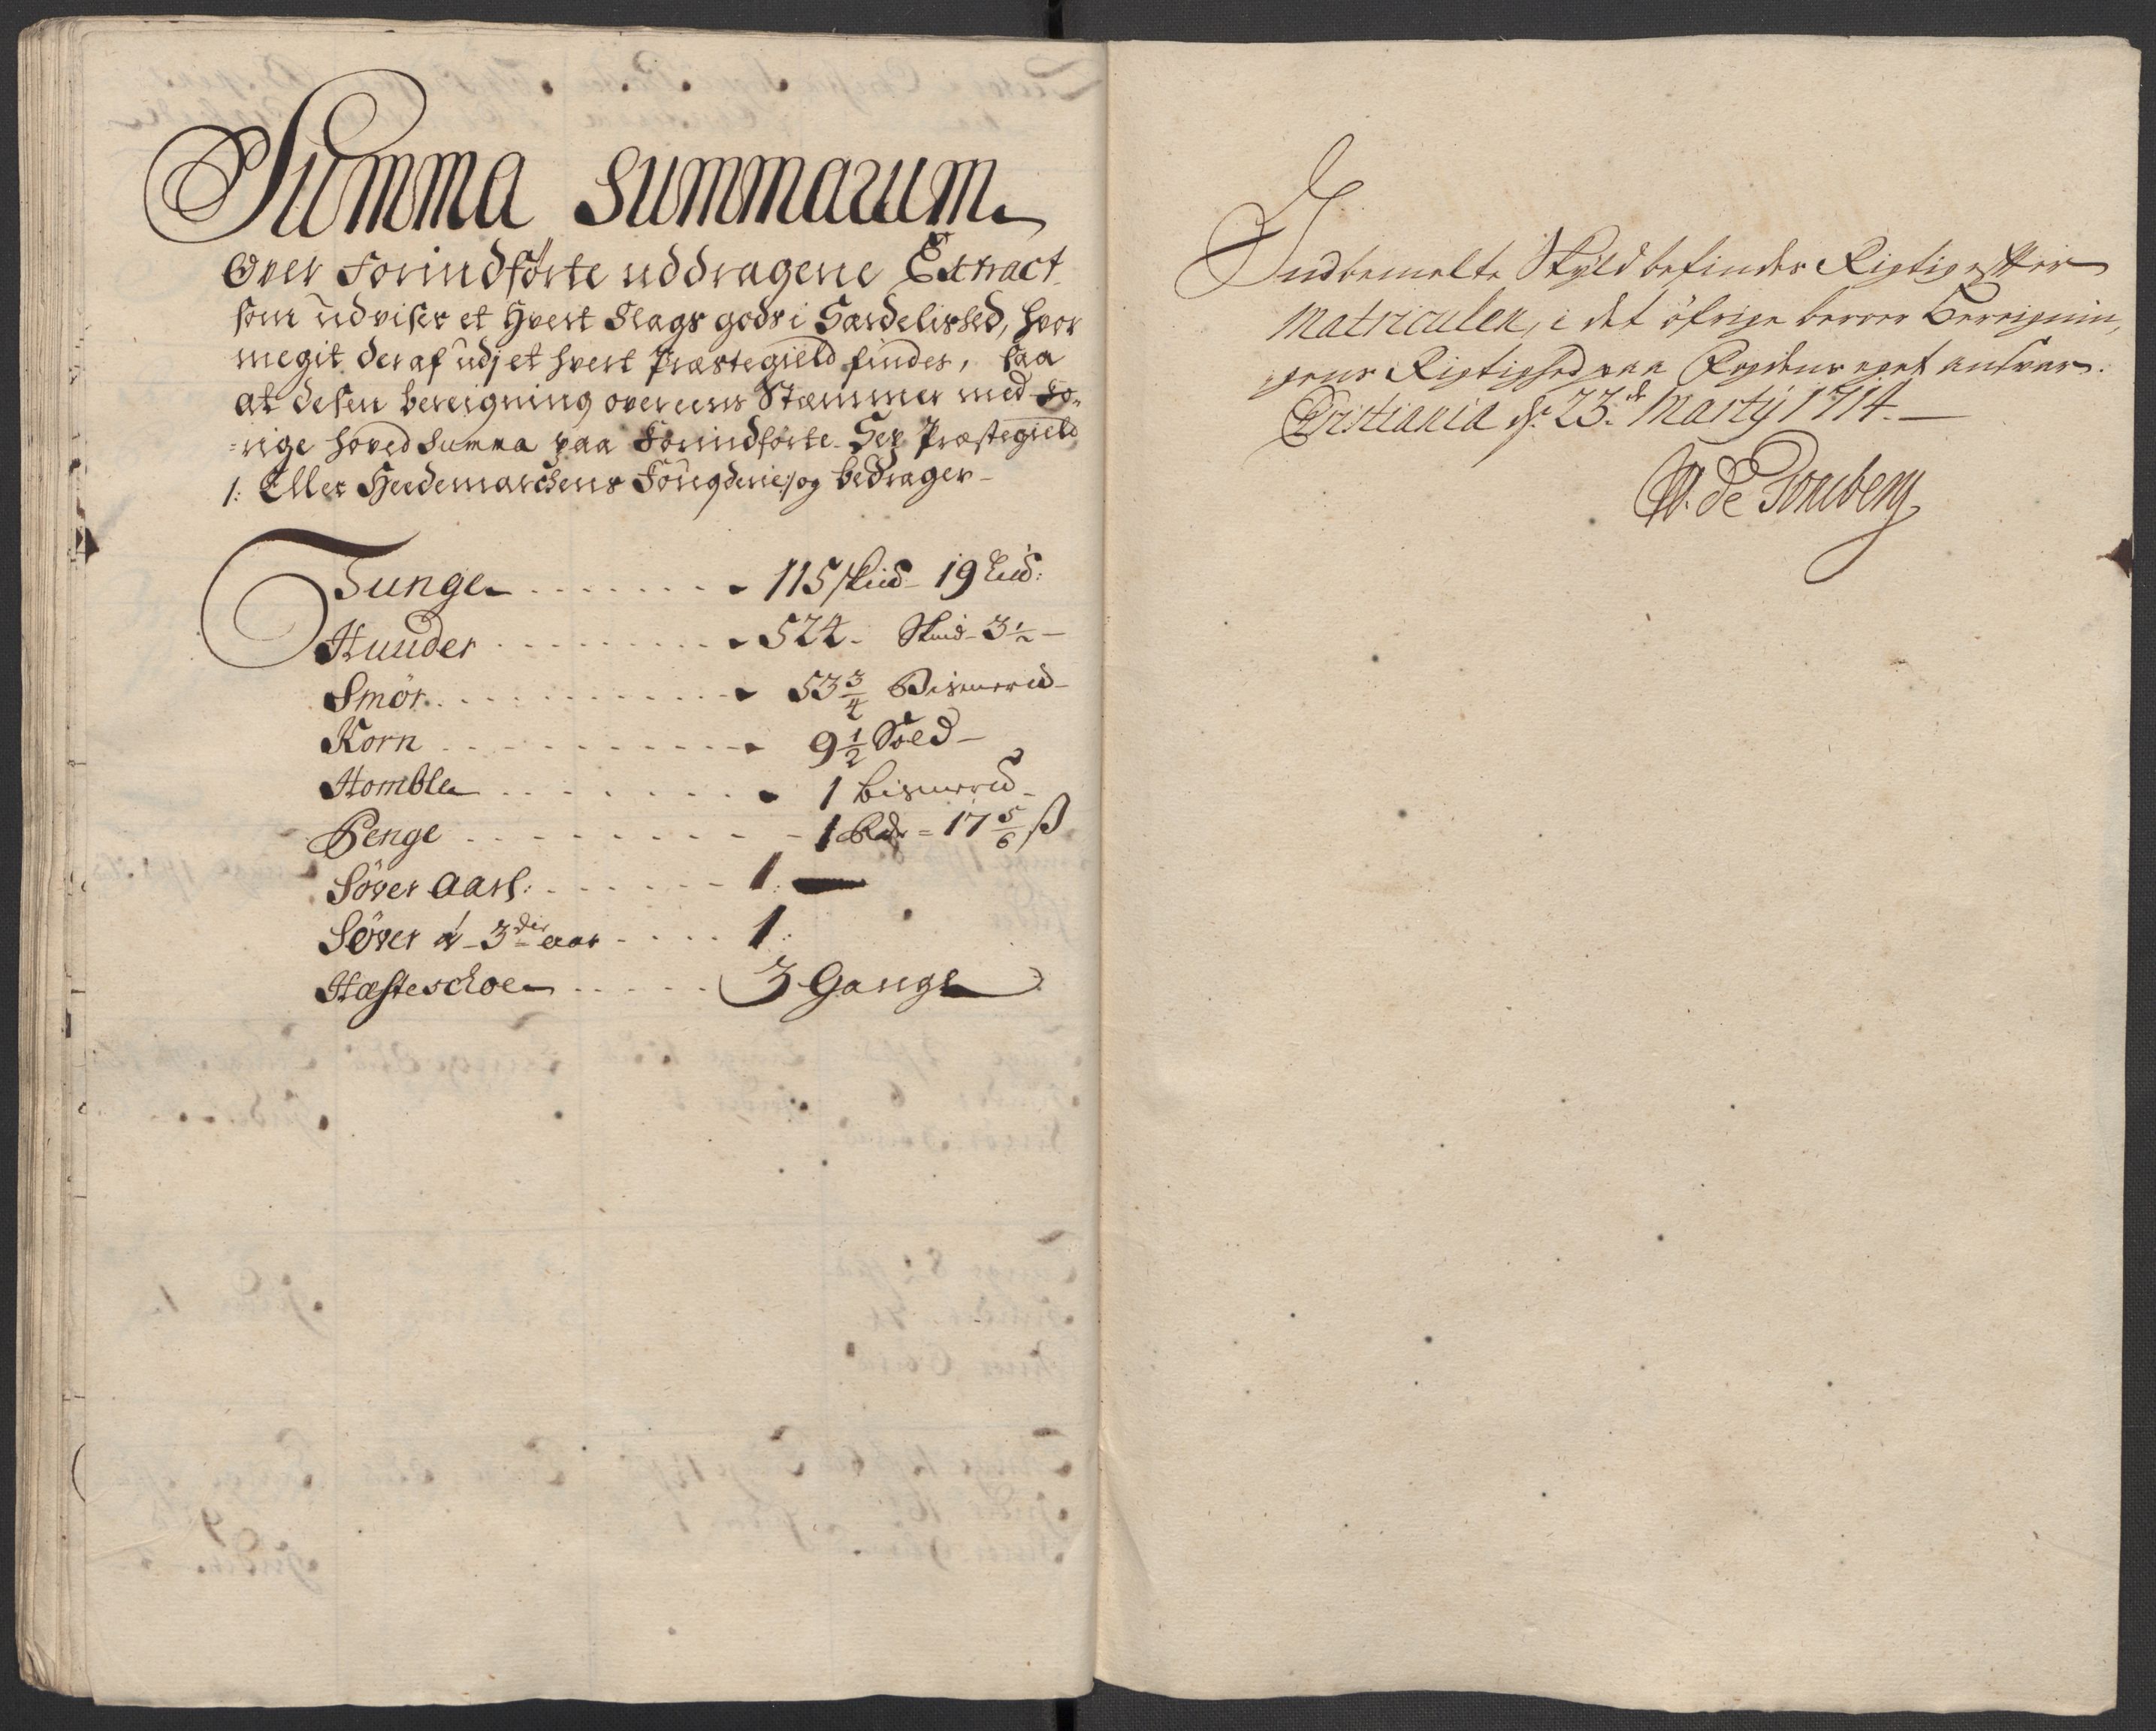 Summa Summarum
Over Forindförte uddragene Extract
som udviser et Hvert Slags gods i Særdelished, hvor
megit deraf udj et hvert Præstegield findes, saa
at desen bereigning overeens Stæmmer med fo„
„rige hoved Summa paa Forindførte Sex Præstegield
/: Eller Hedemarchens Fougderie:/ og bedrager
Tunge 115 skud 19 Lud:
Huuder 524 Skind 3½
Smör 53¾ Bismerud
Korn 9½ Sæd
Homble 1 bismerud
Penge 1 Rdr 17 5/6 ß
Söver Aarl: 1:
Söver á 3die aar 1:
Hæsteschoe 3 Gange
Indbemelte Skyld befindes Rigtig efter
Matriculen, i det öfrige beroer Bereignin,
gens Rigtighed paa Fogdens eget ansvar.
Christiania d: 23de Martÿ 1714.